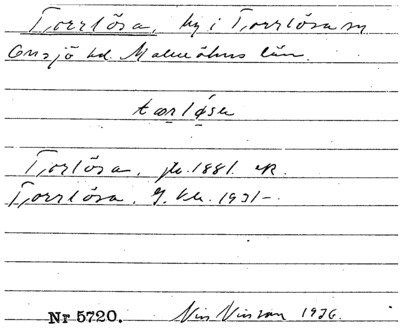 Torrlösa, by i Torrlösa sn
Onsjö hd. Malmöhus län.
tærløsa
Torlösa. jb. 1881. R.
Torrlösa. G. kb. 1931-.
Nr 5720. Nils Nilsson 1936.